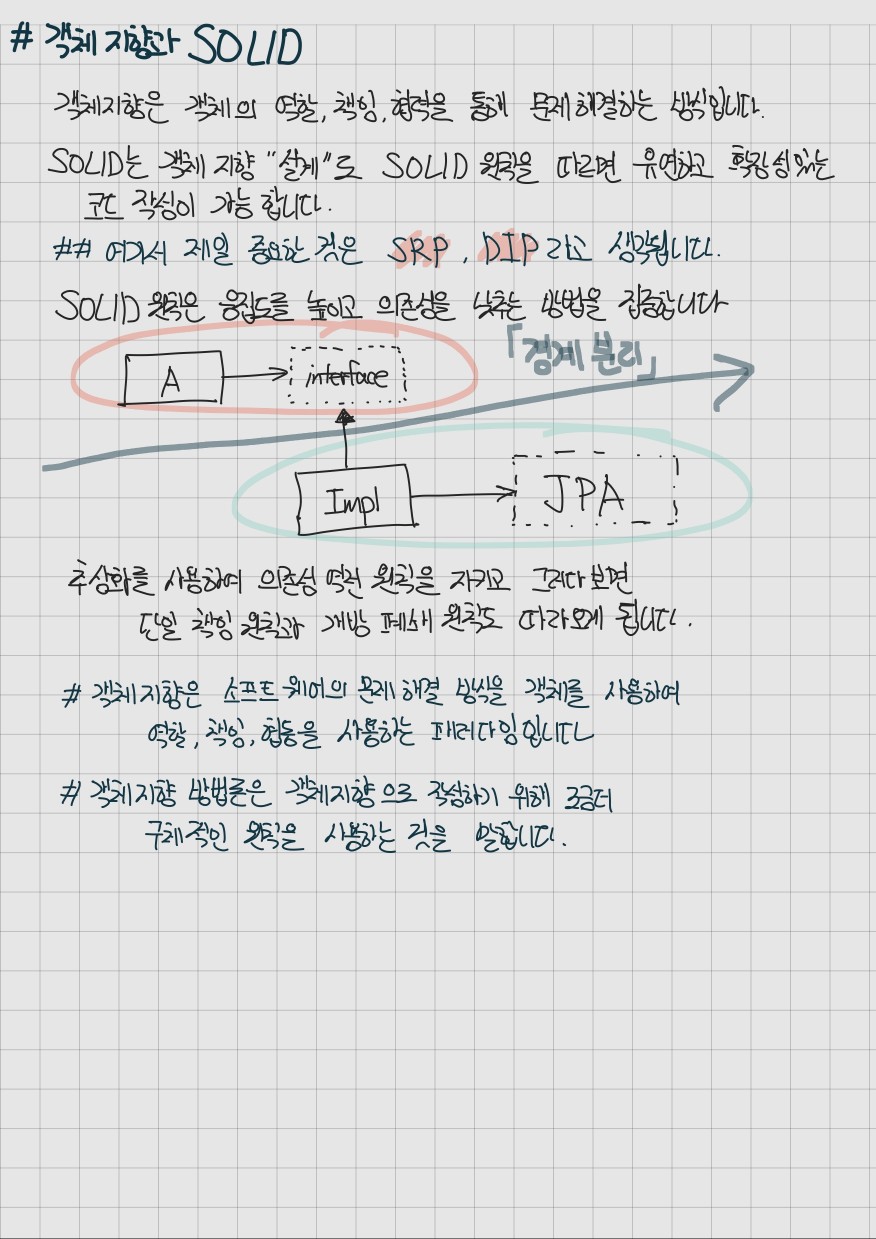 # 객체 지향과 SOLID
객체지향은 객체의 역할, 책임, 협력을 통해 문제 해결하는 방식입니다.
SOLID는 객체 지향 "설계"로 SOLID 원칙을 따르면 유연하고 확장성 있는
코드 작성이 가능 합니다.
## 여기서 제일 중요한 것은 SRP, DIP 라고 생각됩니다.
SOLID 원칙은 응집도를 높이고 의존성을 낮추는 방법을 집중합니다
「경계 분리」
A
interface
Impl
JPA
추상화를 사용하여 의존성 역전 원칙을 지키고 그러다 보면
단일 책임 원칙과 개방 폐쇄 원칙도 따라오게 됩니다.
# 객체 지향은 소프트웨어의 문제 해결 방식을 객체를 사용하여
역할, 책임, 협동을 사용하는 패러다임입니다
# 객체지향 방법론은 객체지향으로 작성하기 위해 조금더
구체적인 원칙을 사용하는 것을 말합니다.